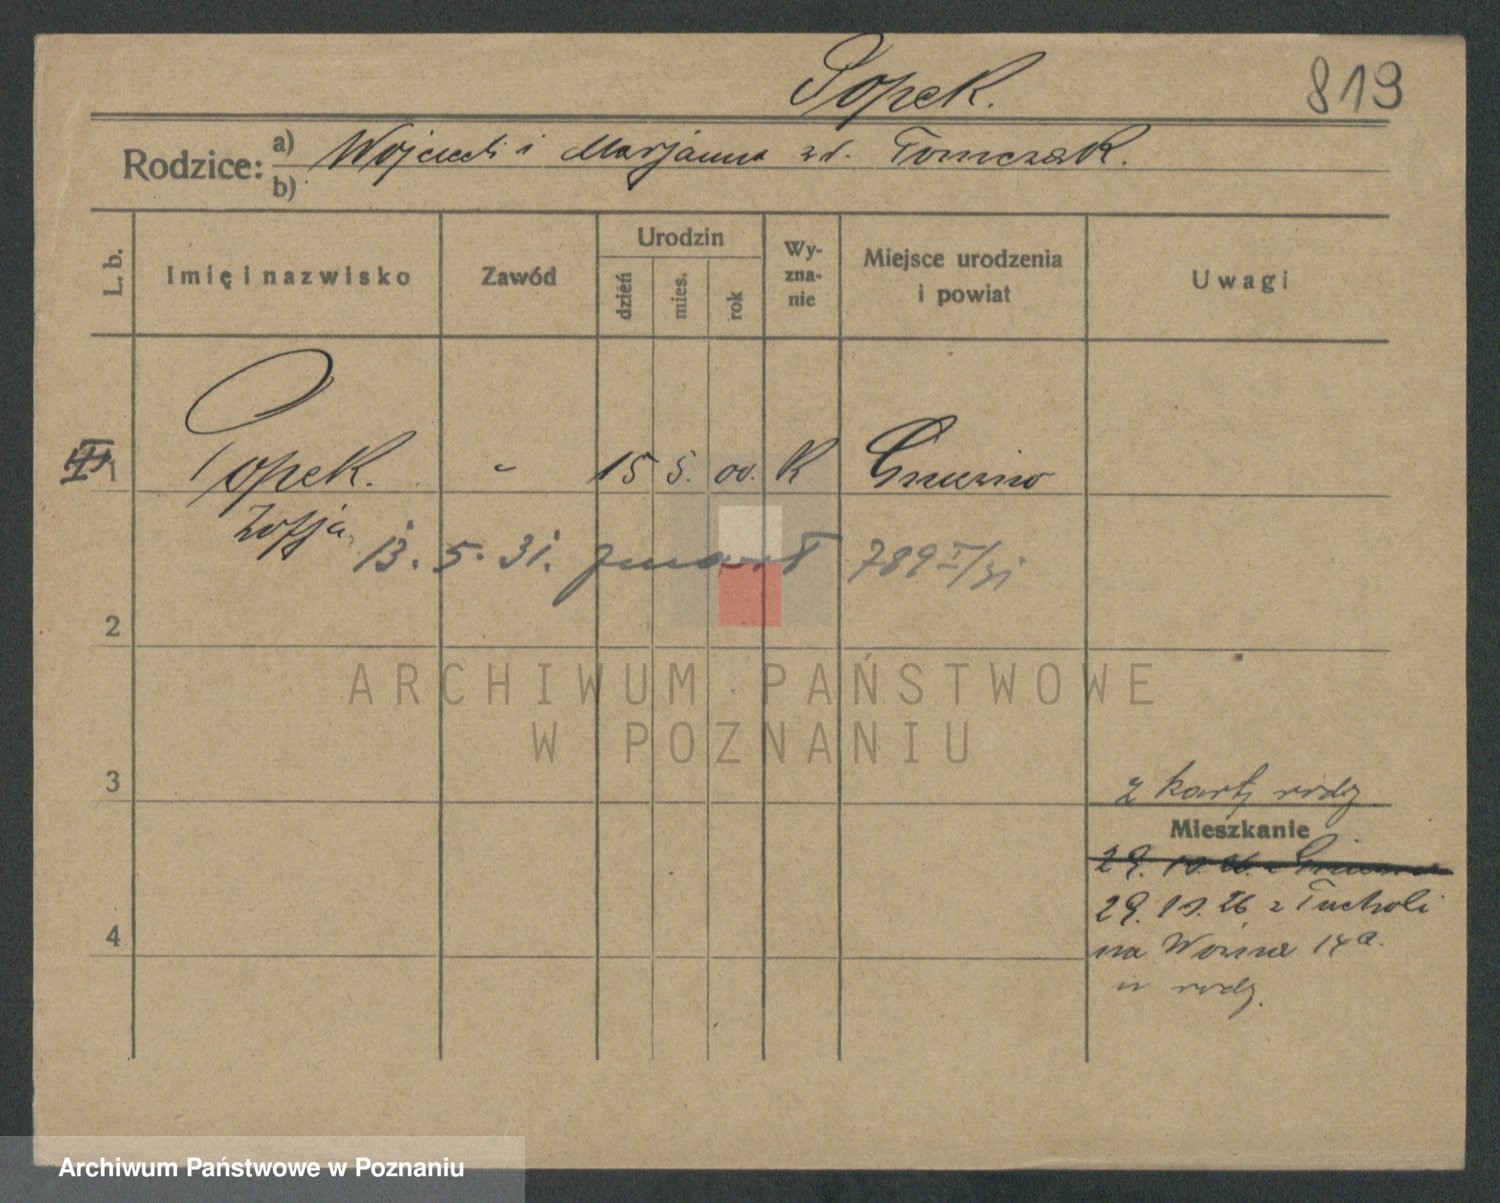 Popek.
819
Rodzice:
a) Wojciech i Marjanna zd. Tomczak.
b)
L. b.
Imię i nazwisko
Zawód
Urodzin
dzień
mies.
rok
Wy-
zna-
nie
Miejsce urodzenia
i powiat
Uwagi
1 Popek. - 15 5. 00. K Gniezno
Zofja
13. 5. 31. zmarł 789 I/31
2
ARCHIWUM PAŃSTWOWE
W POZNANIU
3
z karty rodz.
Mieszkanie
29. 10. 26. z Gniezna
29. 10. 26 z Tucholi
4
na Woźna 14a.
u rodz.
Archiwum Państwowe w Poznaniu